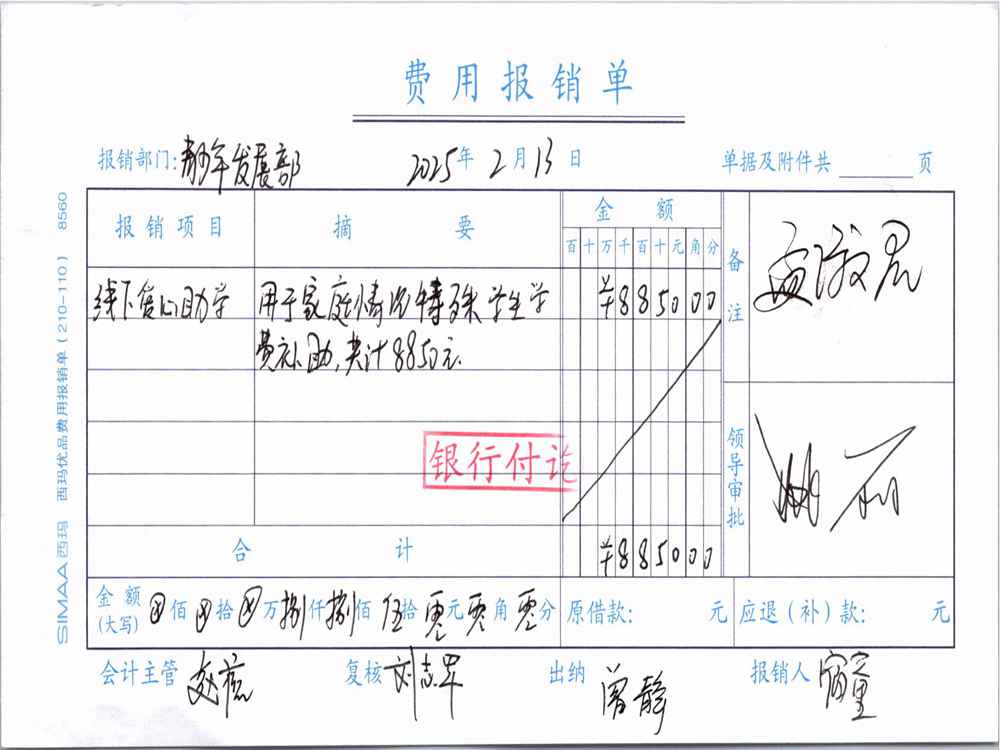 费用报销单
报销部门:青少年发展部 2025年2月13日 单据及附件共 页
报销项目 摘要 金额 备注
百十万千百十元角分
线下爱心助学 用于家庭情况特殊学生学 ¥885000
费补助,共计8850元.
银行付讫
领导审批
合计 ¥885000
金额(大写) ⊗佰⊗拾⊗万捌仟捌佰伍拾零元零角零分 原借款: 元 应退(补)款: 元
会计主管 复核 刘志军 出纳 曾静 报销人
SIMAA西玛 西玛优品费用报销单(210-110) 8560